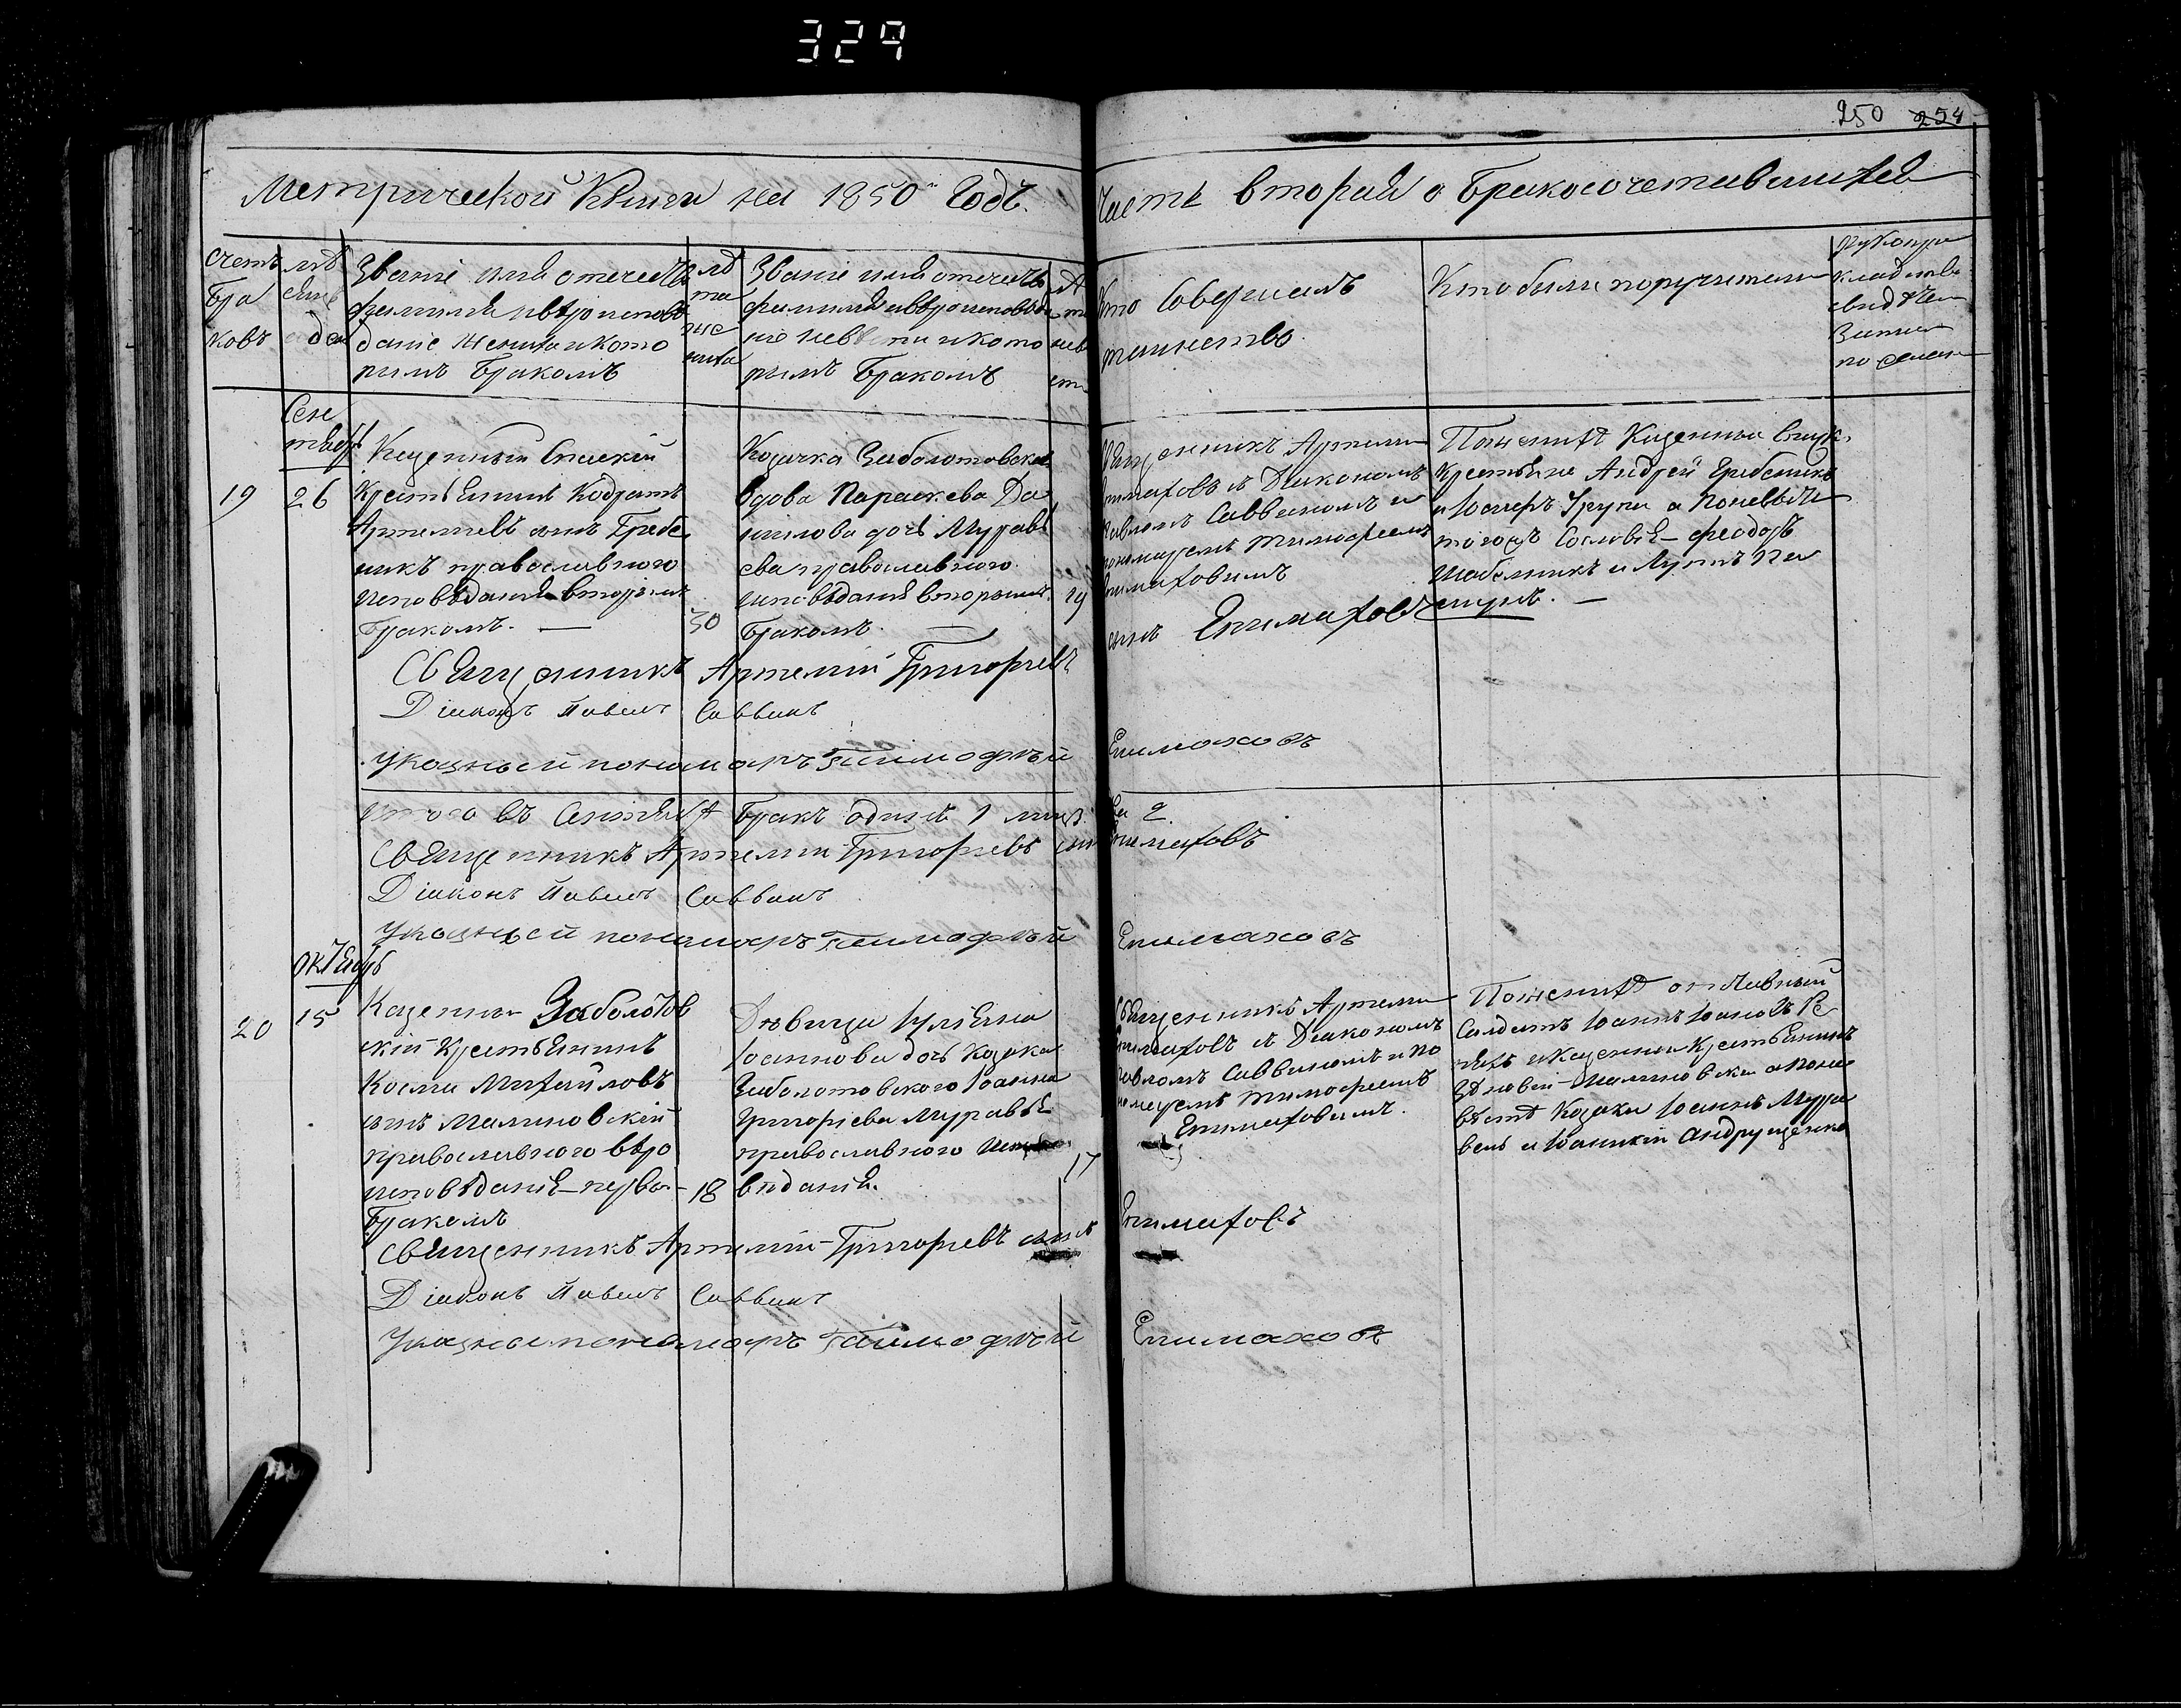 329
250 254
Метрической Книги на 1850 Годъ.
Часть вторая о Бракосочетавшихся
Счетъ Бра ковъ
мѣ сяцъ
Званіе имя отечество
фамилія и вѣроисповѣ
даніе жениха и кото
рымъ Бракомъ
лѣ
та
же
ниха
Званіе имя отечество
фамилія и вѣроисповѣда
ніе невѣсты и кото
рымъ Бракомъ
Кто Совершалъ
таинство.
Кто были поручители
Сен
тябрь
19
26
Казенный Спаскій
Крестьянинъ Кодратъ
Артеміевъ сынъ Гребе
никъ православного
исповѣданія вторымъ
Бракомъ. —
30
Козачка Заболотовская
вдова Параскева Да
нилова дочь Муравь
ева православного
исповѣданія вторымъ
Бракомъ. —
29
Священникъ Артемій
Епимаховъ съ Діакономъ
Павломъ Саввинымъ и
пономаремъ Тимофеемъ
Епимаховымъ
По женихѣ Казенные
Крестьяне Андрей Гребеникъ
и а по невѣстѣ
того жъ Сословія Феодоръ
и
Священникъ Артемій Григорьевъ
сынъ Епимаховъ
Діаконъ Павелъ Саввинъ
Указный пономарь Тимофѣй Епимаховъ
Итого въ Сентябрѣ Бракъ одинъ 1 лица 2.
Священникъ Артемій Григорьевъ сынъ Епимаховъ
Діаконъ Павелъ Саввинъ
Указный пономарь Тимофѣй Епимаховъ
Октябрь
20
15
Казенный Заболотов
скій Крестьянинъ
Косма Михайловъ
сынъ Малиновскій
православного вѣро
исповѣданія первы
Бракомъ
18
Дѣвица Іуліана
Іоаннова дочь Козака
Заболотовского Іоанна
Григорьева Муравья
православного испо
вѣданія.
17
Священникъ Артемій
Епимаховъ съ Діакономъ
Павломъ Саввинымъ и по
номаремъ Тимофеемъ
Епимаховымъ.
По женихѣ отставный
Солдатъ Іоаннъ
и Казенный Крестьянинъ
Малиновскій а по не
вѣстѣ Козаки Іоаннъ Мура
вель и Іоаникій Андрущенко
Священникъ Артемій Григорьевъ сынъ Епимаховъ
Діаконъ Павелъ Саввинъ
Указный пономарь Тимофѣй Епимаховъ